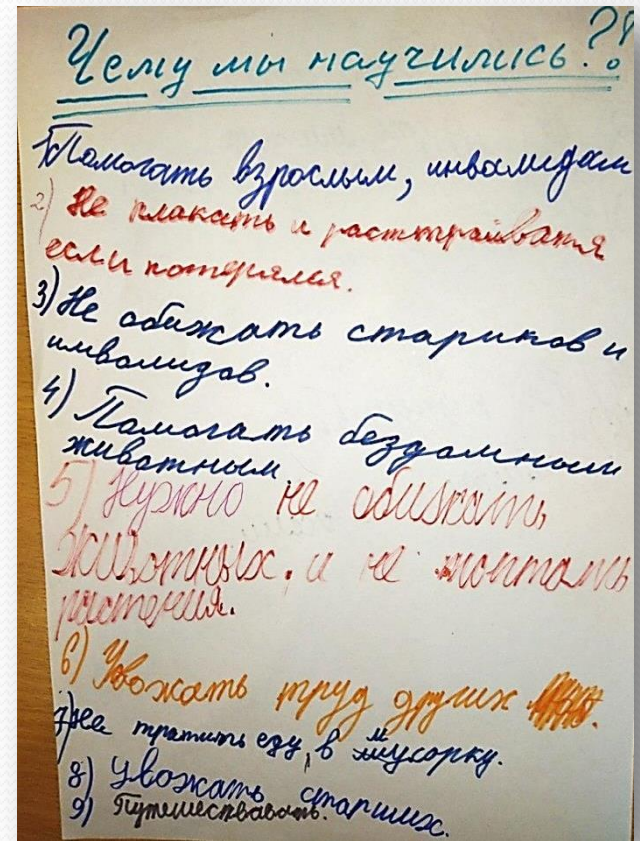 Чему мы научились?!
1) Помогать взрослым, инвалидам
2) Не плакать и расттраиватя
если потерялся.
3) Не обижать стариков и
инволидов.
4) Памагать бездамным
животным
5) Нужно не обижать
животных. и не топтать
растения.
6) Увожать труд других
7) Не тратить еду, в мусорку.
8) Увожать старших.
9) Путешествавать.